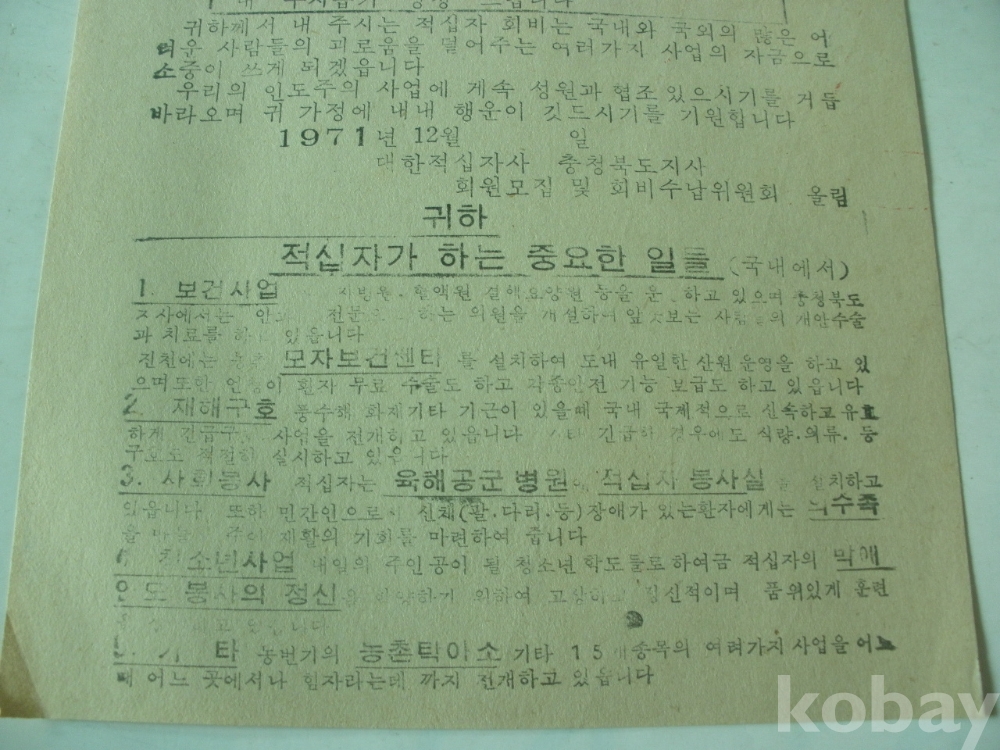 귀하께서 내 주시는 적십자 회비는 국내와 국외의 많은 어
려운 사람들의 괴로움을 덜어주는 여러가지 사업의 자금으로
소중이 쓰게 되겠읍니다
우리의 인도주의 사업에 계속 성원과 협조 있으시기를 거듭
바라오며 귀 가정에 내내 행운이 깃드시기를 기원합니다
1971년 12월 일
대한적십자사 충청북도지사
회원모집 및 회비수납위원회 올림
귀하
적십자가 하는 중요한 일들 (국내에서)
1. 보건사업 혈액원 결핵요양원 등을 운 하고 있으며 충청북도
지사에서는 하는 의원을 개설하여 앞 못보는 개안수술
과 치료를 있읍니다
진천에는 모자보건센터 를 설치하여 도내 유일한 산원 운영을 하고 있
으며 또한 환자 무료 수술도 하고 각종안전 기능 보급도 하고 있읍니다
2. 재해구호 풍수해 화재기타 기근이 있을때 국내 국제적으로 신속하고 유효
하게 긴급구 사업을 전개하고 있읍니다 긴급한 경우에도 식량.의류.등
실시하고 있읍니다
3. 사회봉사 적십자는 육해공군 병원 적십자 봉사실 설치하고
있읍니다 또한 민간인으로서 신체(팔.다리.등)장애가 있는환자에게는 의수족
을 주어 재활의 기회를 마련하여 줍니다
청소년사업 내일의 주인공이 될 청소년 학도들로 하여금 적십자의 박애
인도 봉사의 정신 위하여 정신적이며 품위있게 훈련
타 농번기의 농촌탁아소 기타 15 종목의 여러가지 사업을 어느
때 어느 곳에서나 까지 전개하고 있읍니다
kobay